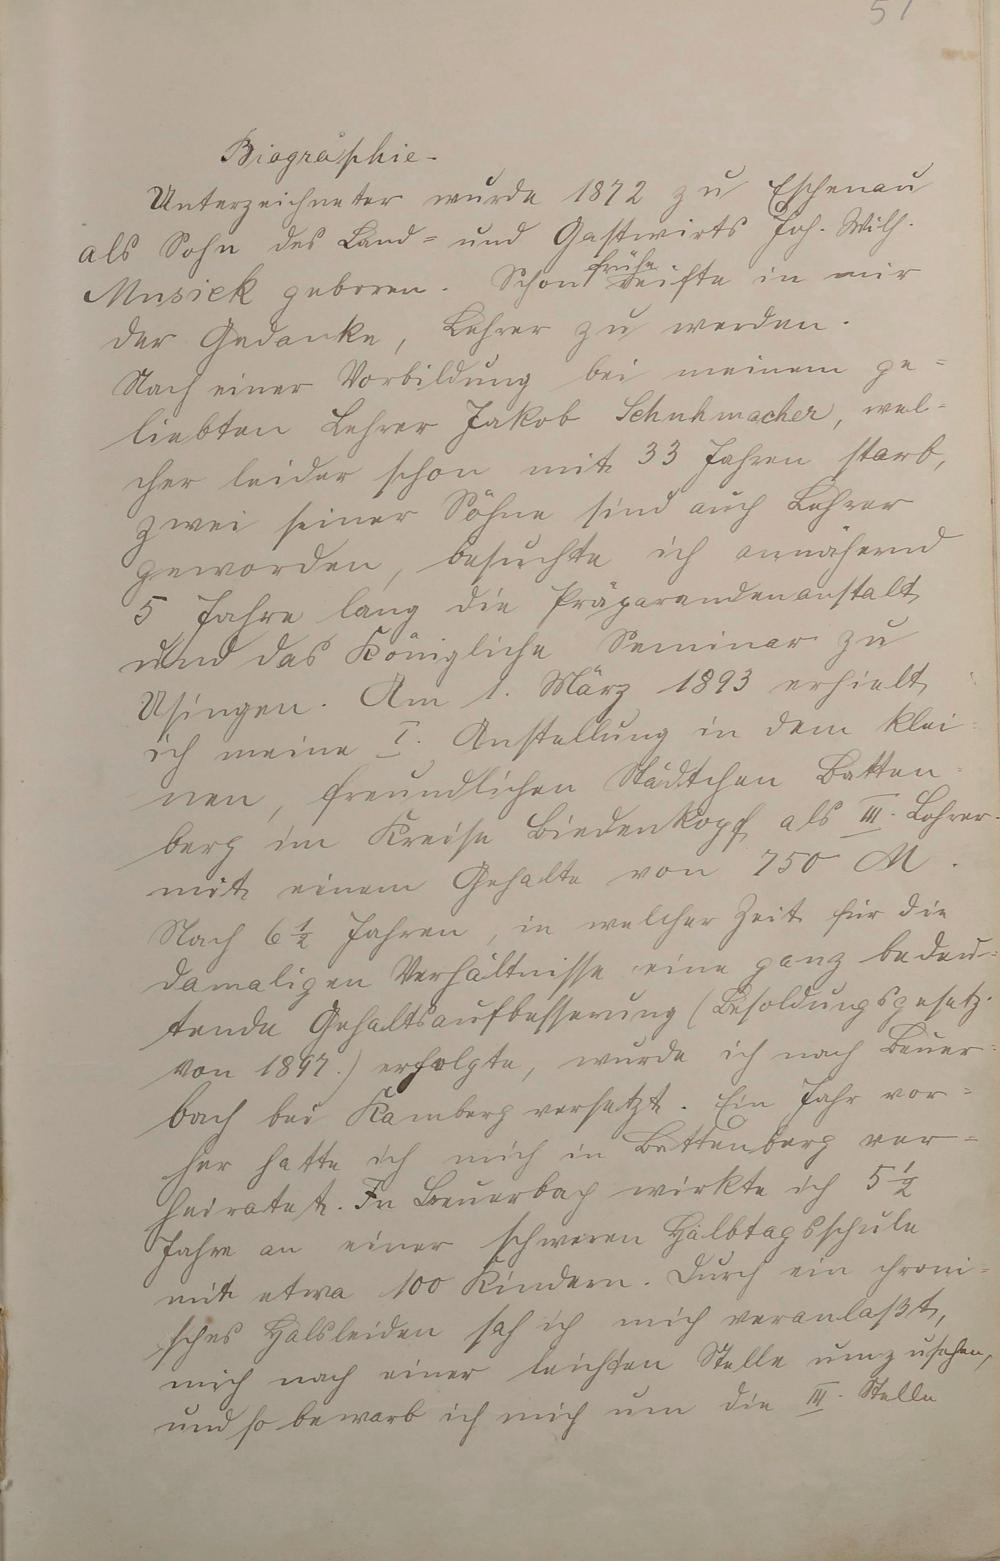 51
Biographie.
Unterzeichneter wurde 1872 zu Eschenau
als Sohn des Land- und Gastwirts Joh. Wilh.
Musiek geboren. Schon frühe reifte in mir
der Gedanke, Lehrer zu werden.
Nach einer Vorbildung bei meinem ge-
liebten Lehrer Jakob Schuhmacher, wel-
cher leider schon mit 33 Jahren starb,
zwei seiner Söhne sind auch Lehrer
geworden, besuchte ich annähernd
5 Jahre lang die Präparandenanstalt
und das Königliche Seminar zu
Usingen. Am 1. März 1893 erhielt
ich meine I. Anstellung in dem klei-
nen, freundlichen Städtchen Batten-
berg im Kreise Biedenkopf als III. Lehrer
mit einem Gehalte von 750 M.
Nach 6 1/2 Jahren, in welcher Zeit für die
damaligen Verhältnisse eine ganz bedeu-
tende Gehaltsaufbesserung (Besoldungsgesetz
von 1897.) erfolgte, wurde ich nach Beuer-
bach bei Kamberg versetzt. Ein Jahr vor-
her hatte ich mich in Battenberg ver-
heiratet. In Beuerbach wirkte ich 5 1/2
Jahre an einer schweren Halbtagsschule
mit etwa 100 Kindern. Durch ein chroni-
sches Halsleiden sah ich mich veranlaßt,
mich nach einer leichten Stelle umzusehen,
und so bewarb ich mich um die III. Stelle